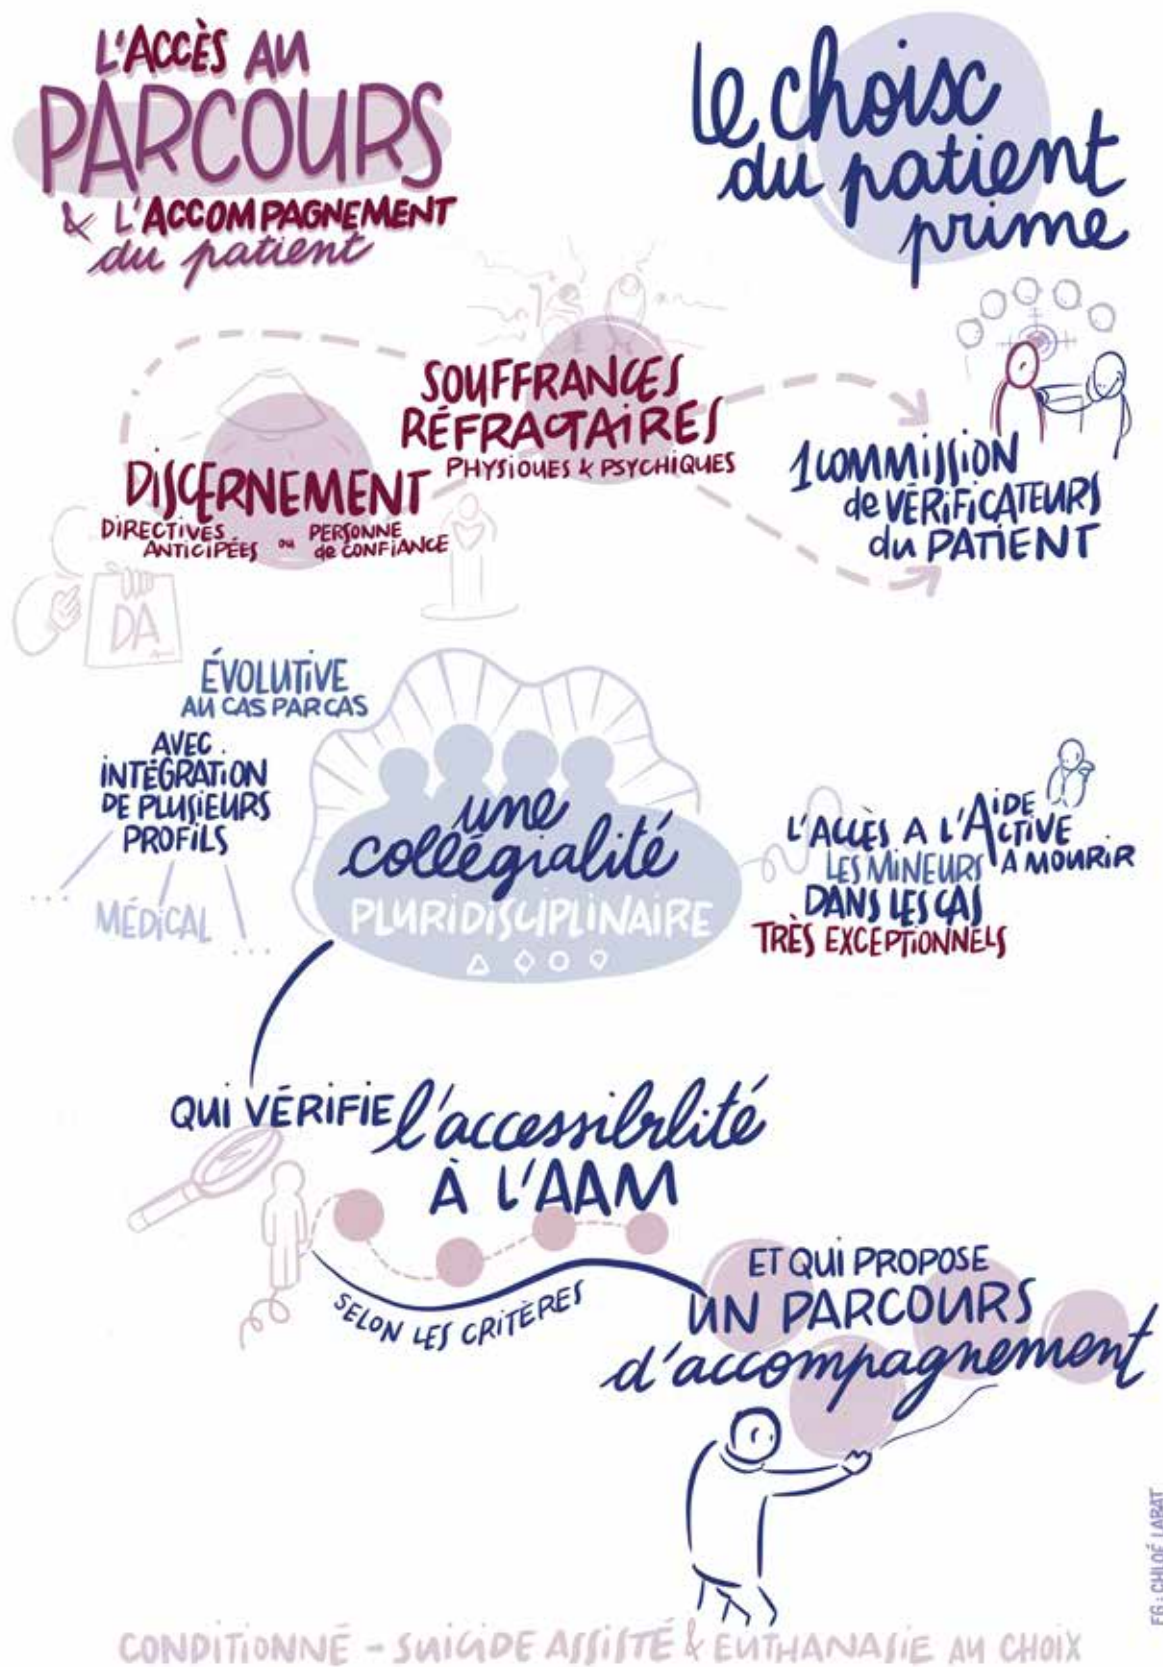 L'ACCÈS AU
PARCOURS
& L'ACCOMPAGNEMENT
du patient
le choix
du patient
prime
SOUFFRANCES
RÉFRACTAIRES
PHYSIQUES & PSYCHIQUES
DISCERNEMENT
DIRECTIVES
ANTICIPÉES ou PERSONNE
de CONFIANCE
DA
1 COMMISSION
de VÉRIFICATEURS
du PATIENT
ÉVOLUTIVE
AU CAS PAR CAS
AVEC
INTÉGRATION
DE PLUSIEURS
PROFILS
...
MÉDICAL
...
une
collégialité
PLURIDISCIPLINAIRE
L'ACCÈS A L'AIDE
ACTIVE
A MOURIR
LES MINEURS
DANS LES CAS
TRÈS EXCEPTIONNELS
QUI VÉRIFIE l'accessibilité
À L'AAM
SELON LES CRITÈRES
ET QUI PROPOSE
UN PARCOURS
d'accompagnement
FG : CHLOÉ LABAT
CONDITIONNÉ - SUICIDE ASSISTÉ & EUTHANASIE AU CHOIX